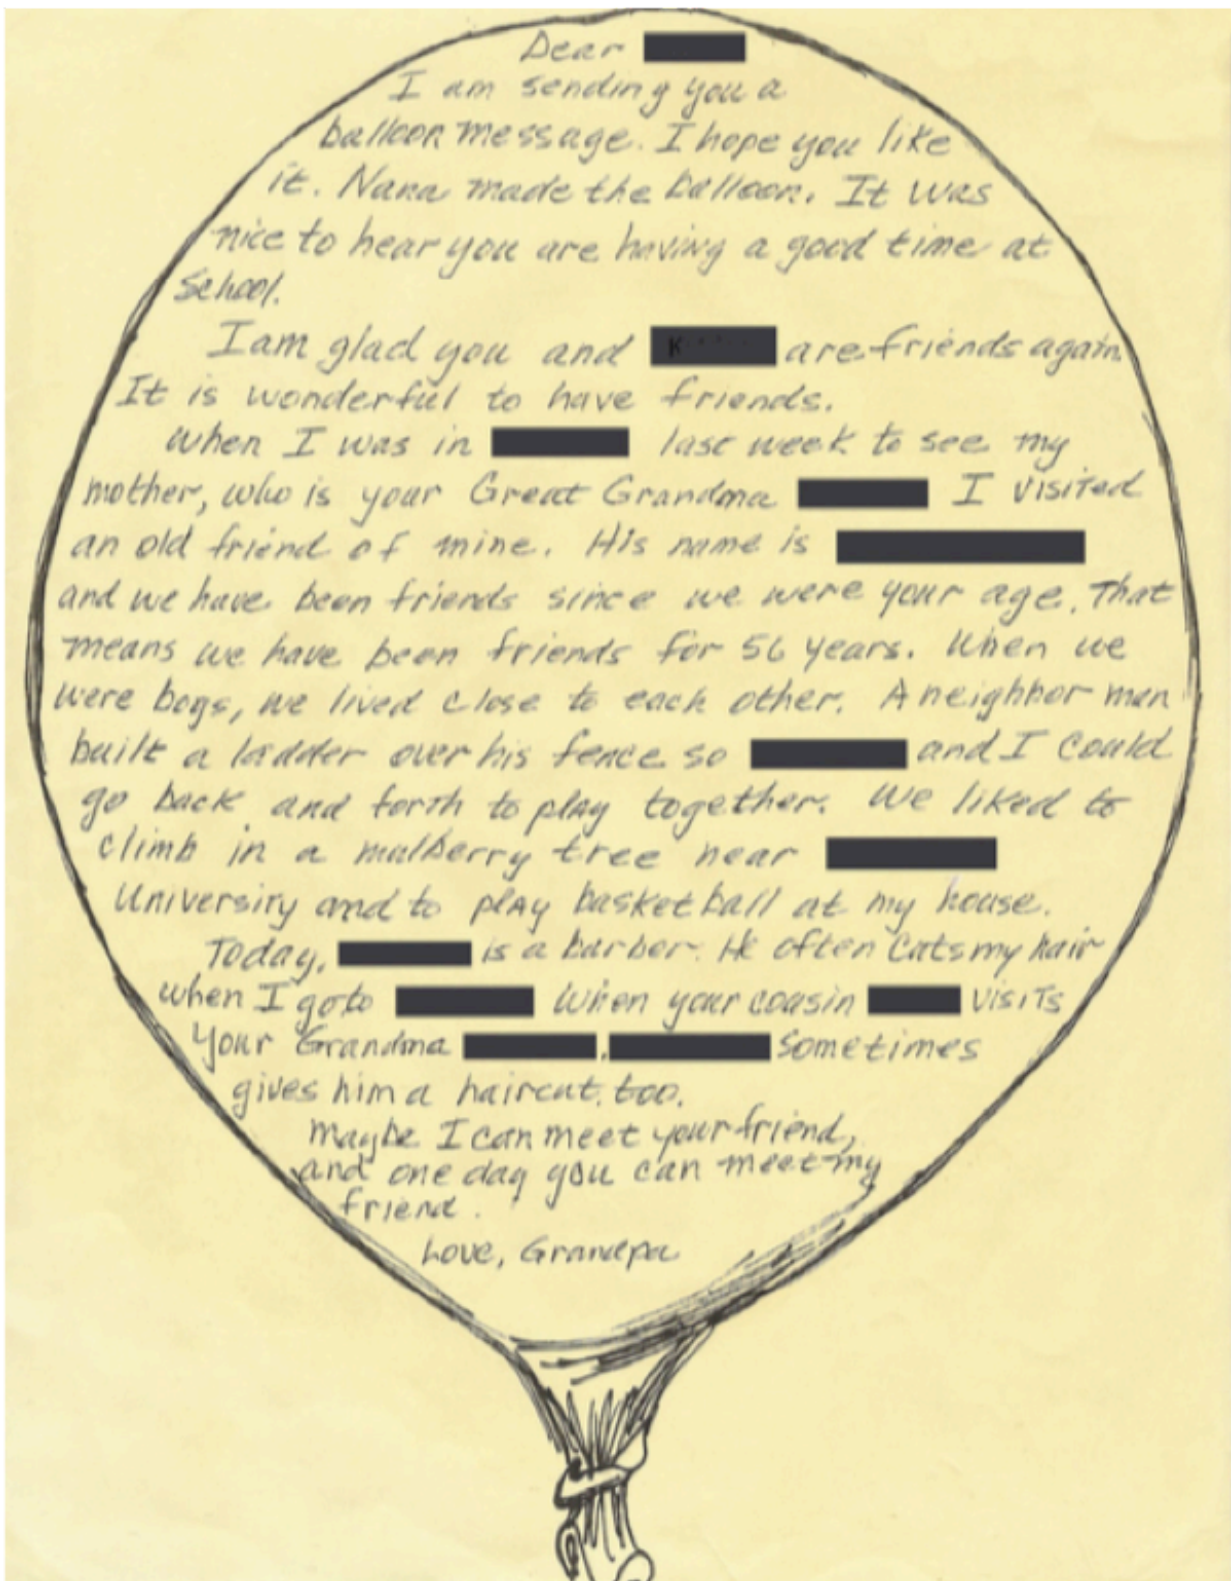 Dear
I am sending you a
balloon message. I hope you like
it. Nana made the balloon. It was
nice to hear you are having a good time at
School.
I am glad you and K are friends again
It is wonderful to have friends.
When I was in last week to see my
mother, who is your Great Grandma I visited
an old friend of mine. His name is
and we have been friends since we were your age. That
means we have been friends for 56 years. When we
were boys, we lived close to each other. A neighbor man
built a ladder over his fence so and I could
go back and forth to play together. We liked to
climb in a mulberry tree near
University and to play basketball at my house.
Today, is a barber. He often cuts my hair
when I go to When your cousin visits
your Grandma , sometimes
gives him a haircut, too.
Maybe I can meet your friend,
and one day you can meet my
friend.
Love, Grandpa